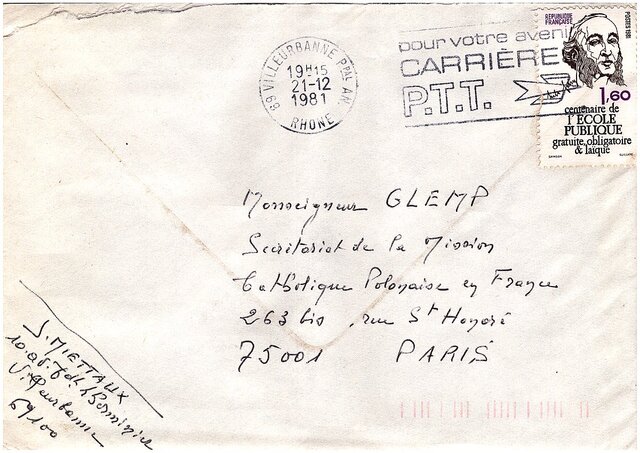 69 VILLEURBANNE PPAL AR
19H15
21-12
1981
RHONE
pour votre avenir
CARRIÈRE
P.T.T.
REPUBLIQUE
FRANÇAISE
POSTES 1981
1,60
centenaire de
l'ECOLE
PUBLIQUE
gratuite, obligatoire
& laïque
Monseigneur GLEMP
Secrétariat de la Mission
Catholique Polonaise en France
263 bis, rue St Honoré
75001 PARIS
J. MIETTAUX
10. av.
Villeurbanne
69100